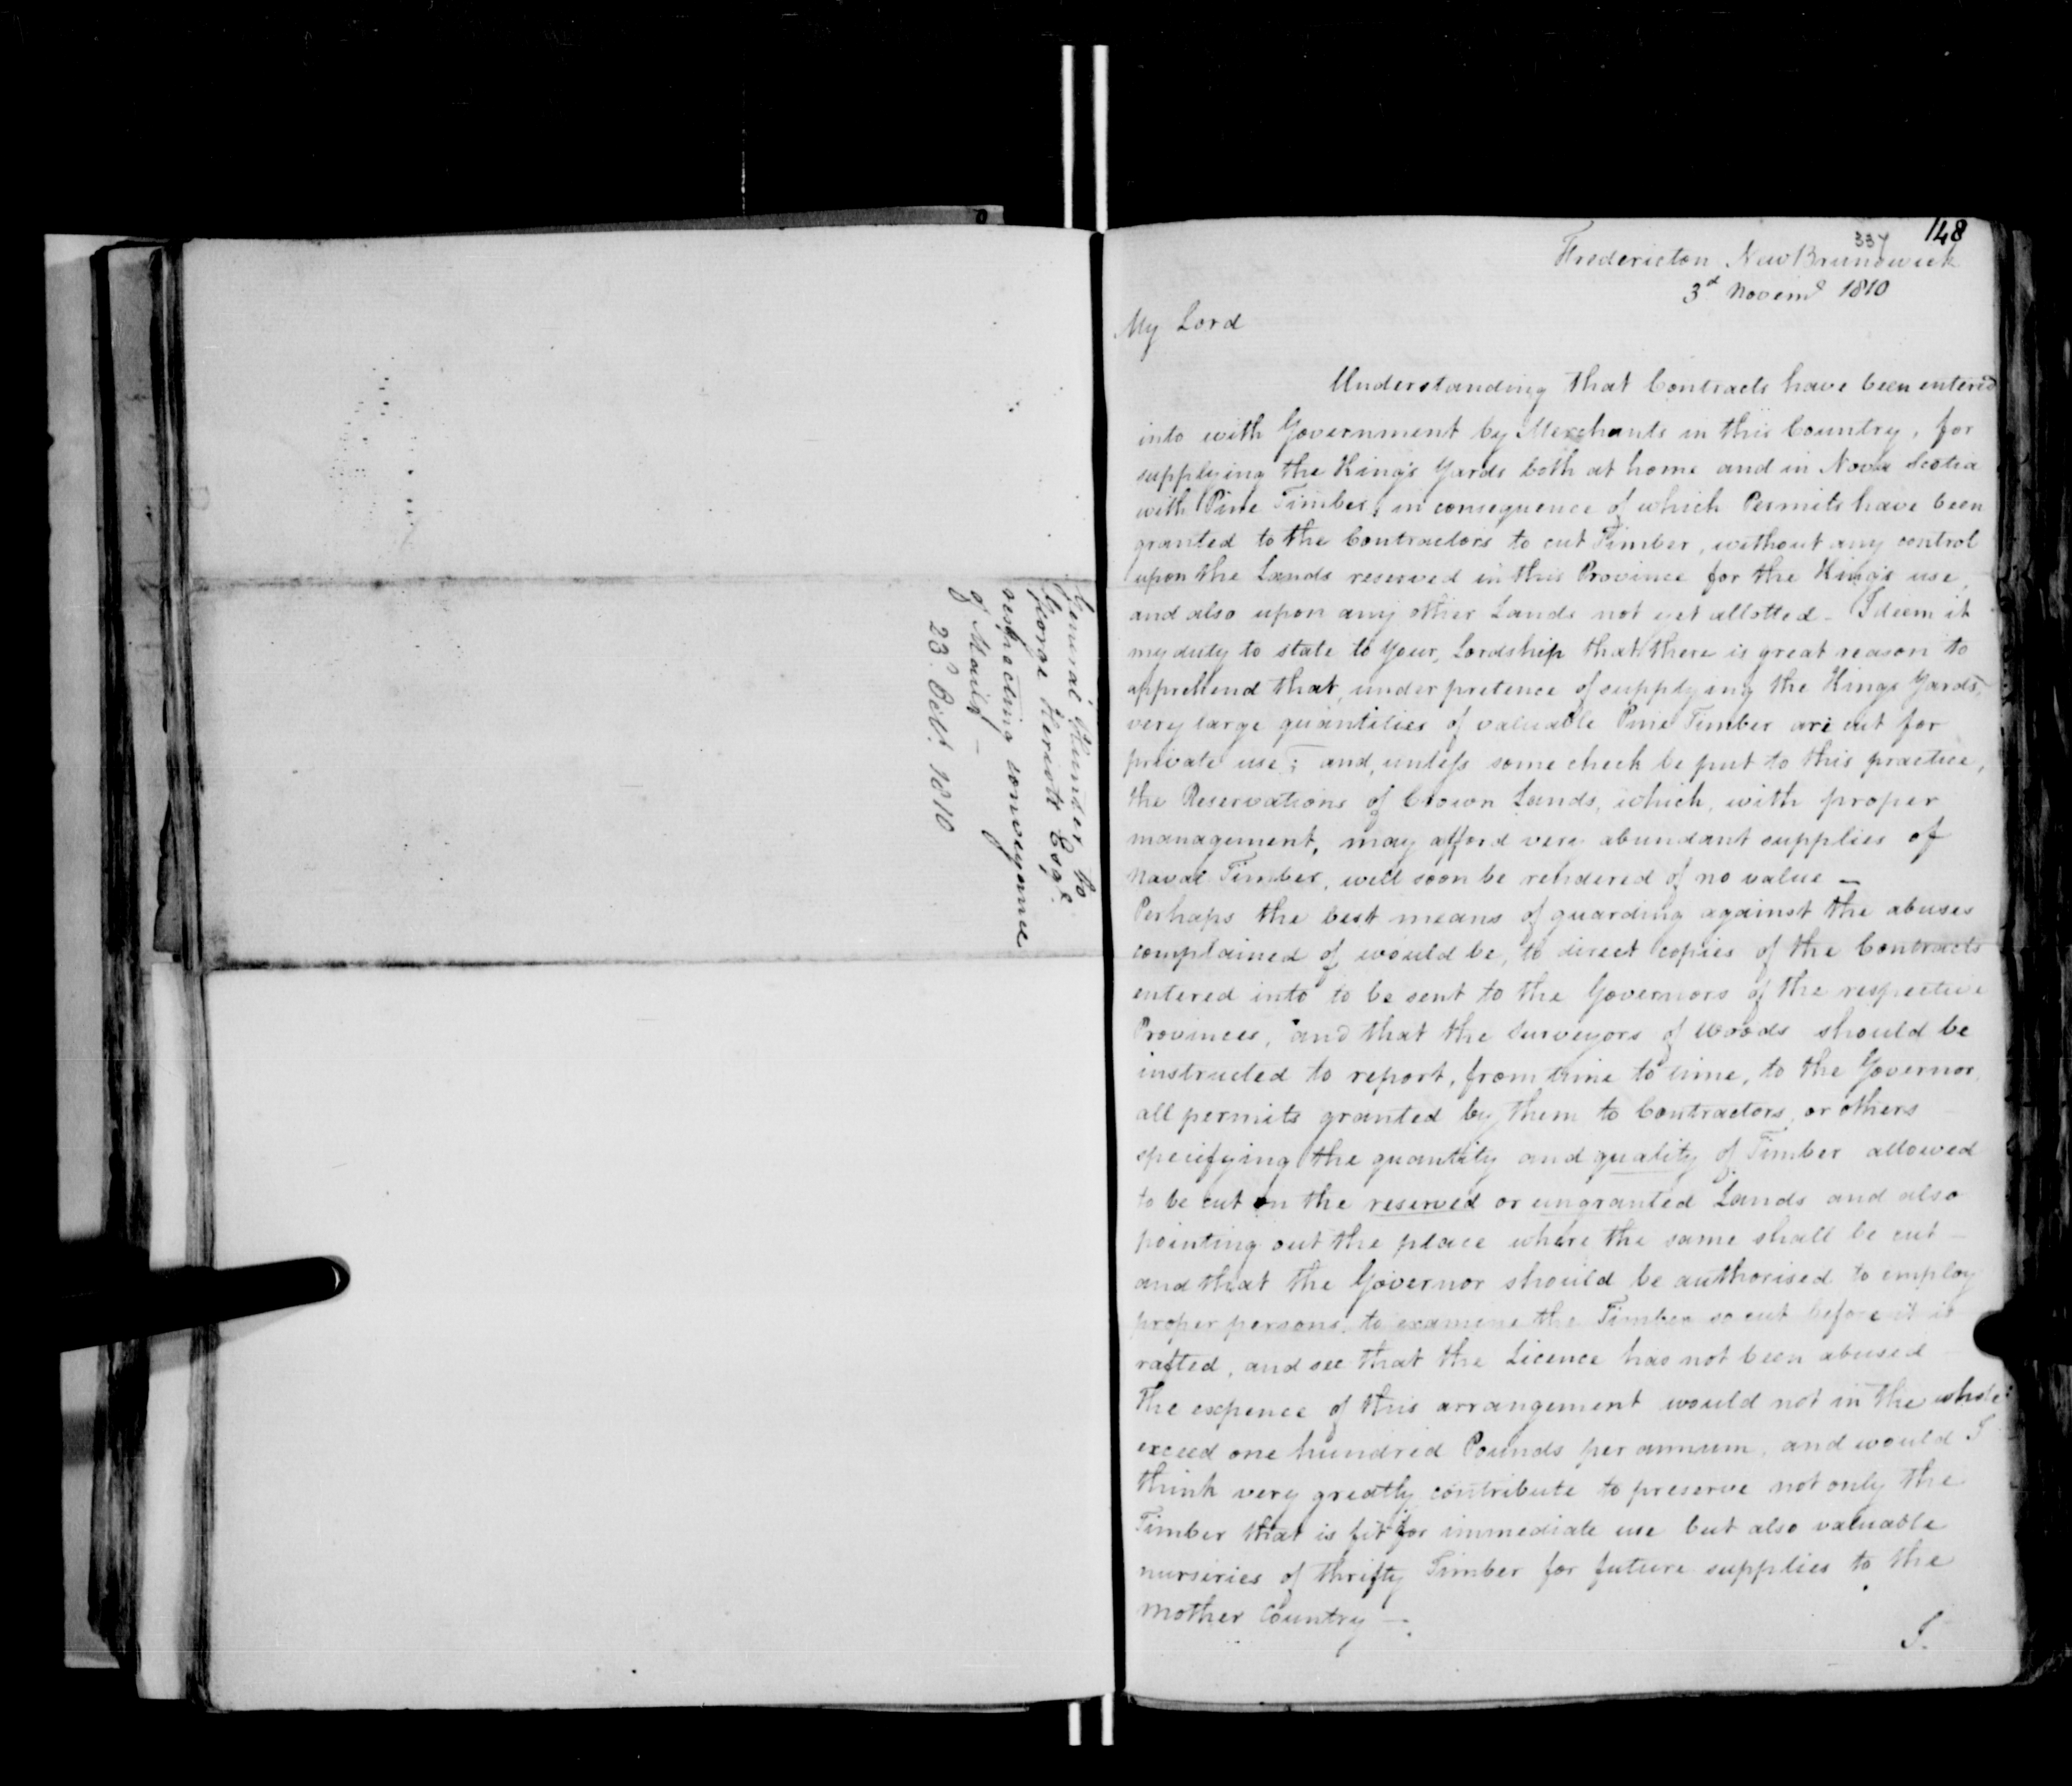 General Hunter to
George Heriott Esqr.
respecting conveyance
of Mails —
23d. Octr. 1810
148
337
Fredericton New Brunswick
3d Novemr 1810
My Lord
Understanding that Contracts have been entered
into with Government by Merchants in this Country, for
supplying the King's Yards both at home and in Nova Scotia
with Pine Timber, in consequence of which Permits have been
granted to the Contractors to cut Timber, without any control
upon the Lands reserved in this Province for the King's use,
and also upon any other Lands not yet allotted - I deem it
my duty to state to Your Lordship that there is great reason to
apprehend that, under pretence of supplying the Kings Yards,
very large quantities of valuable Pine Timber are cut for
private use; and, unless some check be put to this practice,
the Reservations of Crown Lands, which, with proper
management, may afford very abundant supplies of
Naval Timber, will soon be rendered of no value —
Perhaps the best means of guarding against the abuses
complained of would be, to direct copies of the Contracts
entered into to be sent to the Governors of the respective
Provinces, and that the Surveyors of Woods should be
instructed to report, from time to time, to the Governor,
all permits granted by them to Contractors, or others
specifying the quantity and quality of Timber allowed
to be cut on the reserved or ungranted Lands and also
pointing out the place where the same shall be cut —
and that the Governor should be authorised to employ
proper persons, to examine the Timber so cut before it is
rafted, and see that the Licence has not been abused
The expence of this arrangement would not in the whole
exceed one hundred Pounds per annum, and would I
think very greatly contribute to preserve not only the
Timber that is fit for immediate use but also valuable
nurseries of thrifty Timber for future supplies to the
Mother Country —.
I.